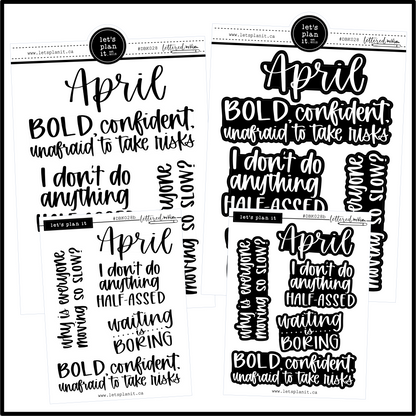 let's
plan
it
www.letsplanit.ca
#DBK028
lettered mom
April
BOLD, confident,
unafraid to take risks
I don't do
anything
HALF-ASSED
why is everyone
moving so slow?
let's
plan
it
www.letsplanit.ca
#DBK028
lettered mom
April
BOLD, confident,
unafraid to take risks
I don't do
anything
HALF-ASSED
why is everyone
moving so slow?
let's plan it
#DBK028b
lettered mom
April
why is everyone
moving so slow?
I don't do
anything
HALF-ASSED
waiting
is
BORING
BOLD, confident,
unafraid to take risks
www.letsplanit.ca
let's plan it
#DBK028b
lettered mom
April
why is everyone
moving so slow?
I don't do
anything
HALF-ASSED
waiting
is
BORING
BOLD, confident,
unafraid to take risks
www.letsplanit.ca